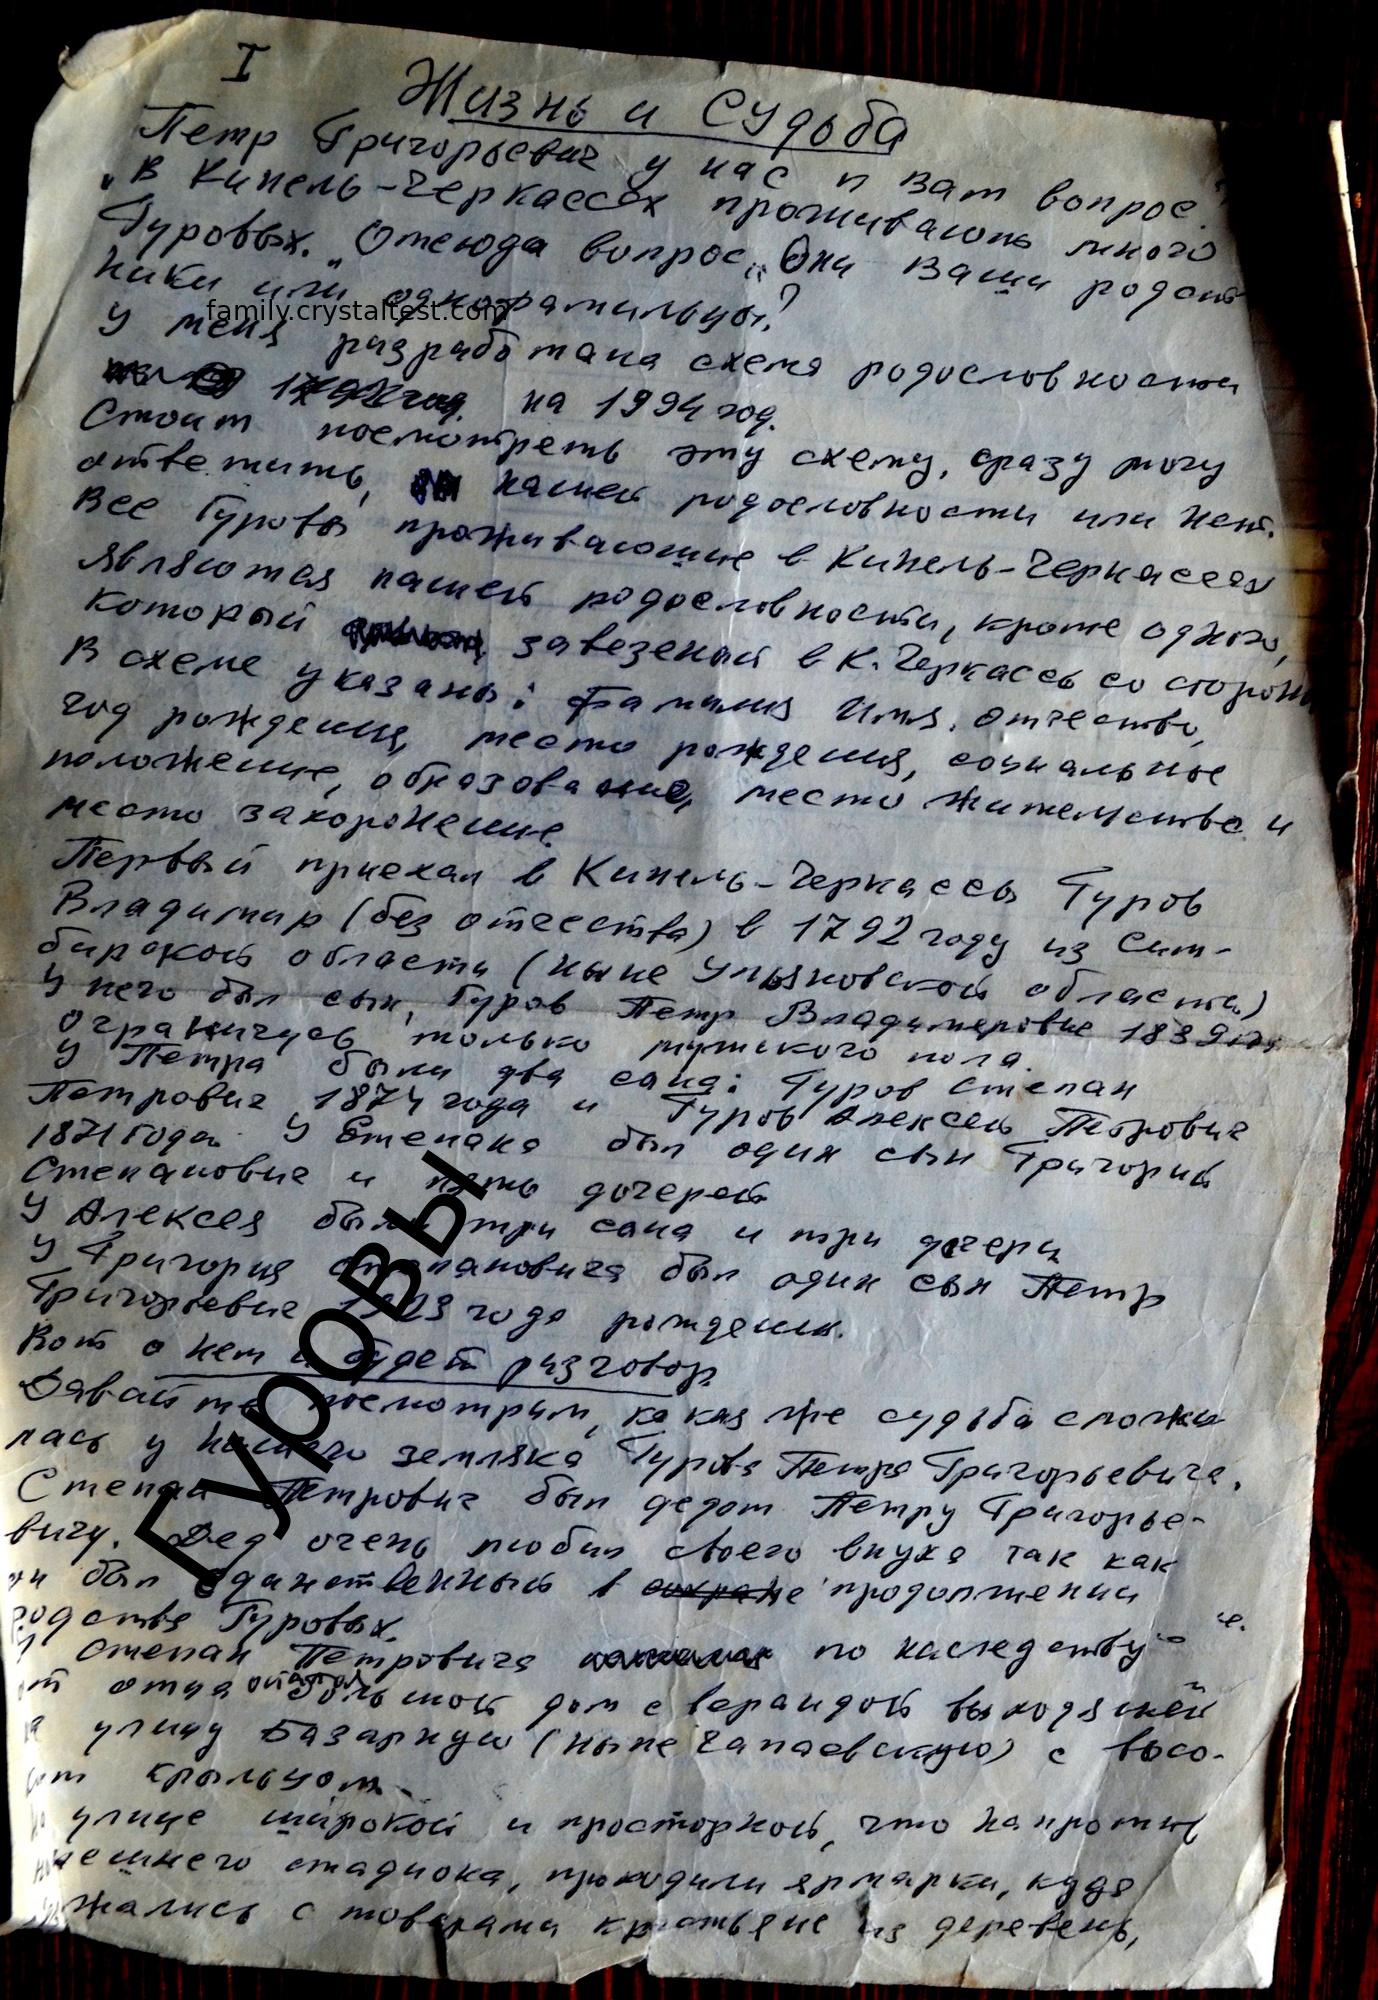 I
Жизнь и Судьба
Петр Григорьевич у нас к Вам вопрос.
„В Кинель-Черкассах проживают много
Гуровых." Отсюда вопрос „Они Ваши родст
ники или однофамильцы?
family.crystaltest.com
У меня разработана схема родословности
на 1994 год.
Стоит посмотреть эту схему, сразу могу
ответить, нашей родословности или нет.
Все Гуровы проживающие в Кинель-Черкассах
являются нашей родословности, кроме одного,
который завезеный в К. Черкассы со стороны
В схеме указаны: Фамилия Имя. Отчество,
год рождения, место рождения, социальное
положение, образование, место жительства и
место захоронение.
Первый приехал в Кинель-Черкассы Гуров
Владимир (без отчества) в 1792 году из Сим-
бирской области (ныне Ульяновской области)
У него был сын, Гуров Петр Владимерович 1839
Ограничусь только мужского пола.
У Петра были два сына: Гуров Степан
Петрович 1874 года и Гуров Алексей Петрович
1871 года. У Степана был один сын Григорий
Степанович и пять дочерей
У Алексея были три сына и три дочери
У Григория Степановича был один сын Петр
Григорьевич 1923 года рождения.
Вот о нем и будет разговор.
Давайте посмотрим, какая же судьба сложи
лась у нашего земляка Гурова Петра Григорьевича.
Степан Петрович был дедом Петру Григорье-
вичу. Дед очень любил своего внука так как
он был единственный в продолжении
родства Гуровых.
У Степан Петровича по наследству
от отца остался большой дом с верандой выходящей
на улицу Базарную (ныне Чапаевскую) с высо-
ким крыльцом.
На улице широкой и просторной, что напротив
нынешнего стадиона, проходили ярмарки, куда
съезжались с товарами крестьяне из деревень,
Гуровы